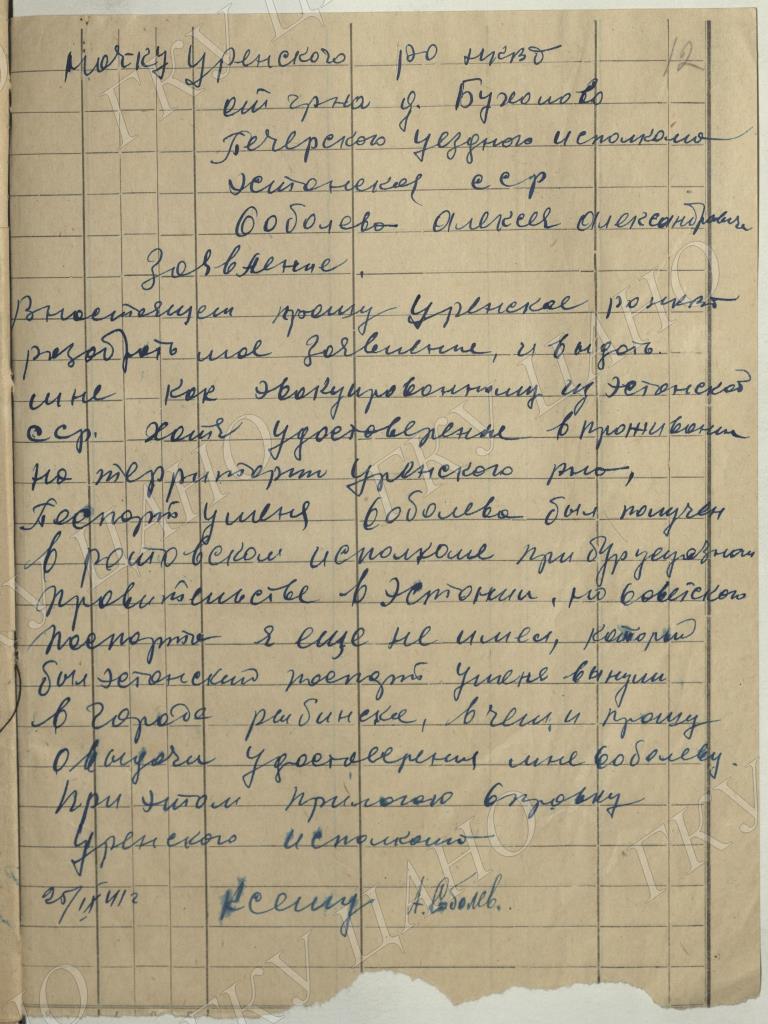 12
Начку Уренского РО НКВД
от гр-на д. Бухолово
Печерского уездного исполкома
Эстонская ССР
Соболева Алексея Александровича
Заявление.
В настоящем прошу Уренское РОНКВД
разобрать мое заявление, и выдать
мне как эвакуированному из Эстонской
ССР. хотя удостоверение в проживании
на территории Уренского р-на,
Паспорт у меня Соболева был получен
в ростовском исполкоме при буржуазном
правительстве в Эстонии, но Советского
паспорта я еще не имел, который
был эстонский паспорт у меня вынули
в города рыбинске, в чем и прошу
о выдачи удостоверения мне Соболеву.
При этом прилогаю Справку
Уренского исполкома
25/IX 41 г К сему А. Соболев.
ГКУ ЦАНО